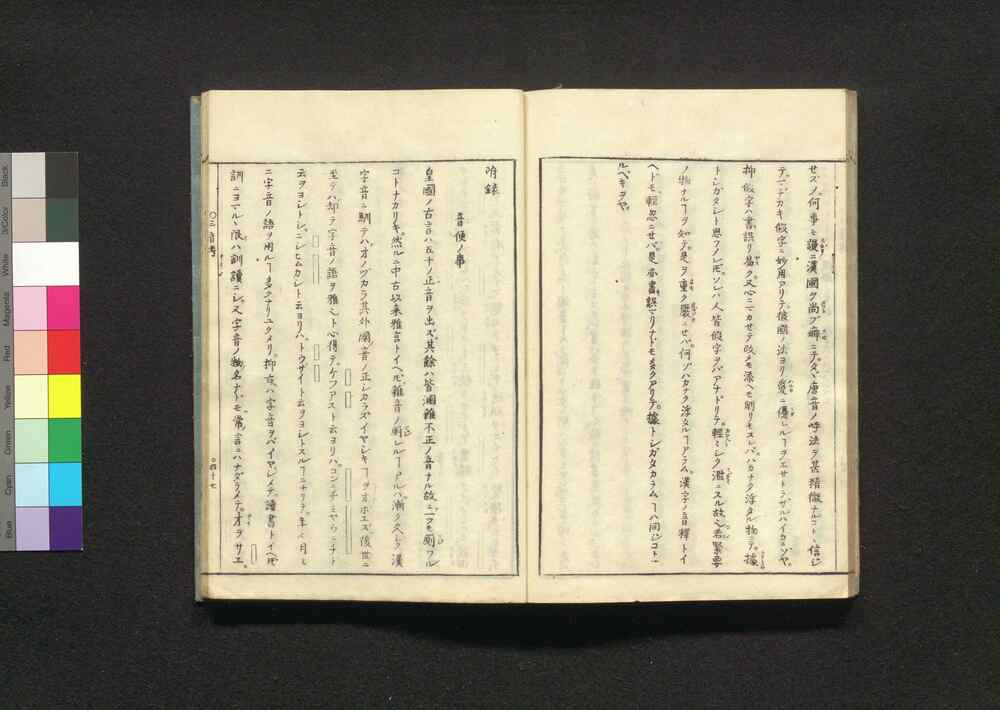 セズ。何事モ謾ニ漢國ヲ尚ブ癖ニテ。タヾ唐音ノ呼法ヲ甚精微ナルコトヽ信ジ
テ。マヂカキ假字ニ妙用アリテ彼國ノ法ヨリ遙ニ優レルヿヲエサトラザルハイカニゾヤ。
抑假字ハ書誤リ易ク。又心ニマカセテ改メモ添ヘモ削リモスレバ。ハカナク浮タル物ニテ。據
トシガタシト思フメレ𪜈。ソレハ人皆假字ヲバアナドリテ。輕シク濫ニスル故也。若緊要
ノ物ナルヿヲ知テ。是ヲ重ク嚴ニセバ。何ゾハカナク浮タルヿアラム。漢字ノ音釋トイ
ヘドモ。輕忽ニセバ。是亦書誤リナドモ アリテ。據トシガタカラムヿハ同ジコトナ
ルベキヲヤ。
附録
音便ノ事
皇國ノ古言ハ五十ノ正音ヲ出ズ。其餘ハ皆溷雜不正ノ音ナル故ニ。一モ厠フル
コトナカリキ。然ルニ中古以來雅言トイヘ𪜈。雜音ノ厠レルヿアルハ。漸ク久シク漢
字音ニ馴テハオノヅカラ其外國音ノ正シカラズイヤシキヿヲオホエズ。後世ニ
至テハ却テ字音ノ語ヲ雅シト心得テ。ケフアスト云ヨリハ。コンニチミヤウニチト
云ヲヨシトシ。ニシヒムカシト云ヨリハ。トウザイト云ヲヨシトスルヿニナリテ。年々月々
ニ字音ノ語ヲ用ルヿ多クナリユクメリ。抑古ハ字音ヲバイヤシメテ。讀書トイヘ𪜈
訓ニヨマルヽ限ハ訓讀ニシ。又字音ノ物名ナドモ。常言ニハナダラメテ。
〇三音考
〇四十七
Black
3/Color
White
Magenta
Red
Yellow
Green
Cyan
Blue